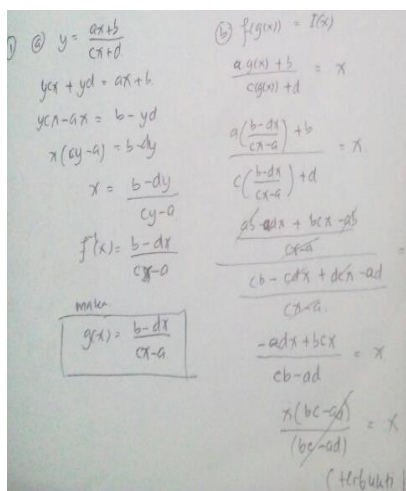 1) (a) y = (ax+b)/(cx+d)
ycx + yd = ax + b
ycx - ax = b - yd
x(cy-a) = b-dy
x = (b-dy)/(cy-a)
f⁻¹(x) = (b-dx)/(cx-a)
maka
g(x) = (b-dx)/(cx-a)
(b) f(g(x)) = I(x)
(a g(x) + b)/(c(g(x)) + d) = x
(a((b-dx)/(cx-a)) + b)/(c((b-dx)/(cx-a)) + d) = x
((ab - adx + bcx - ab)/(cx-a))/((cb - cdx + dcx - ad)/(cx-a)) =
(-adx + bcx)/(cb-ad) = x
(x(bc-ad))/((bc-ad)) = x
(terbukti)